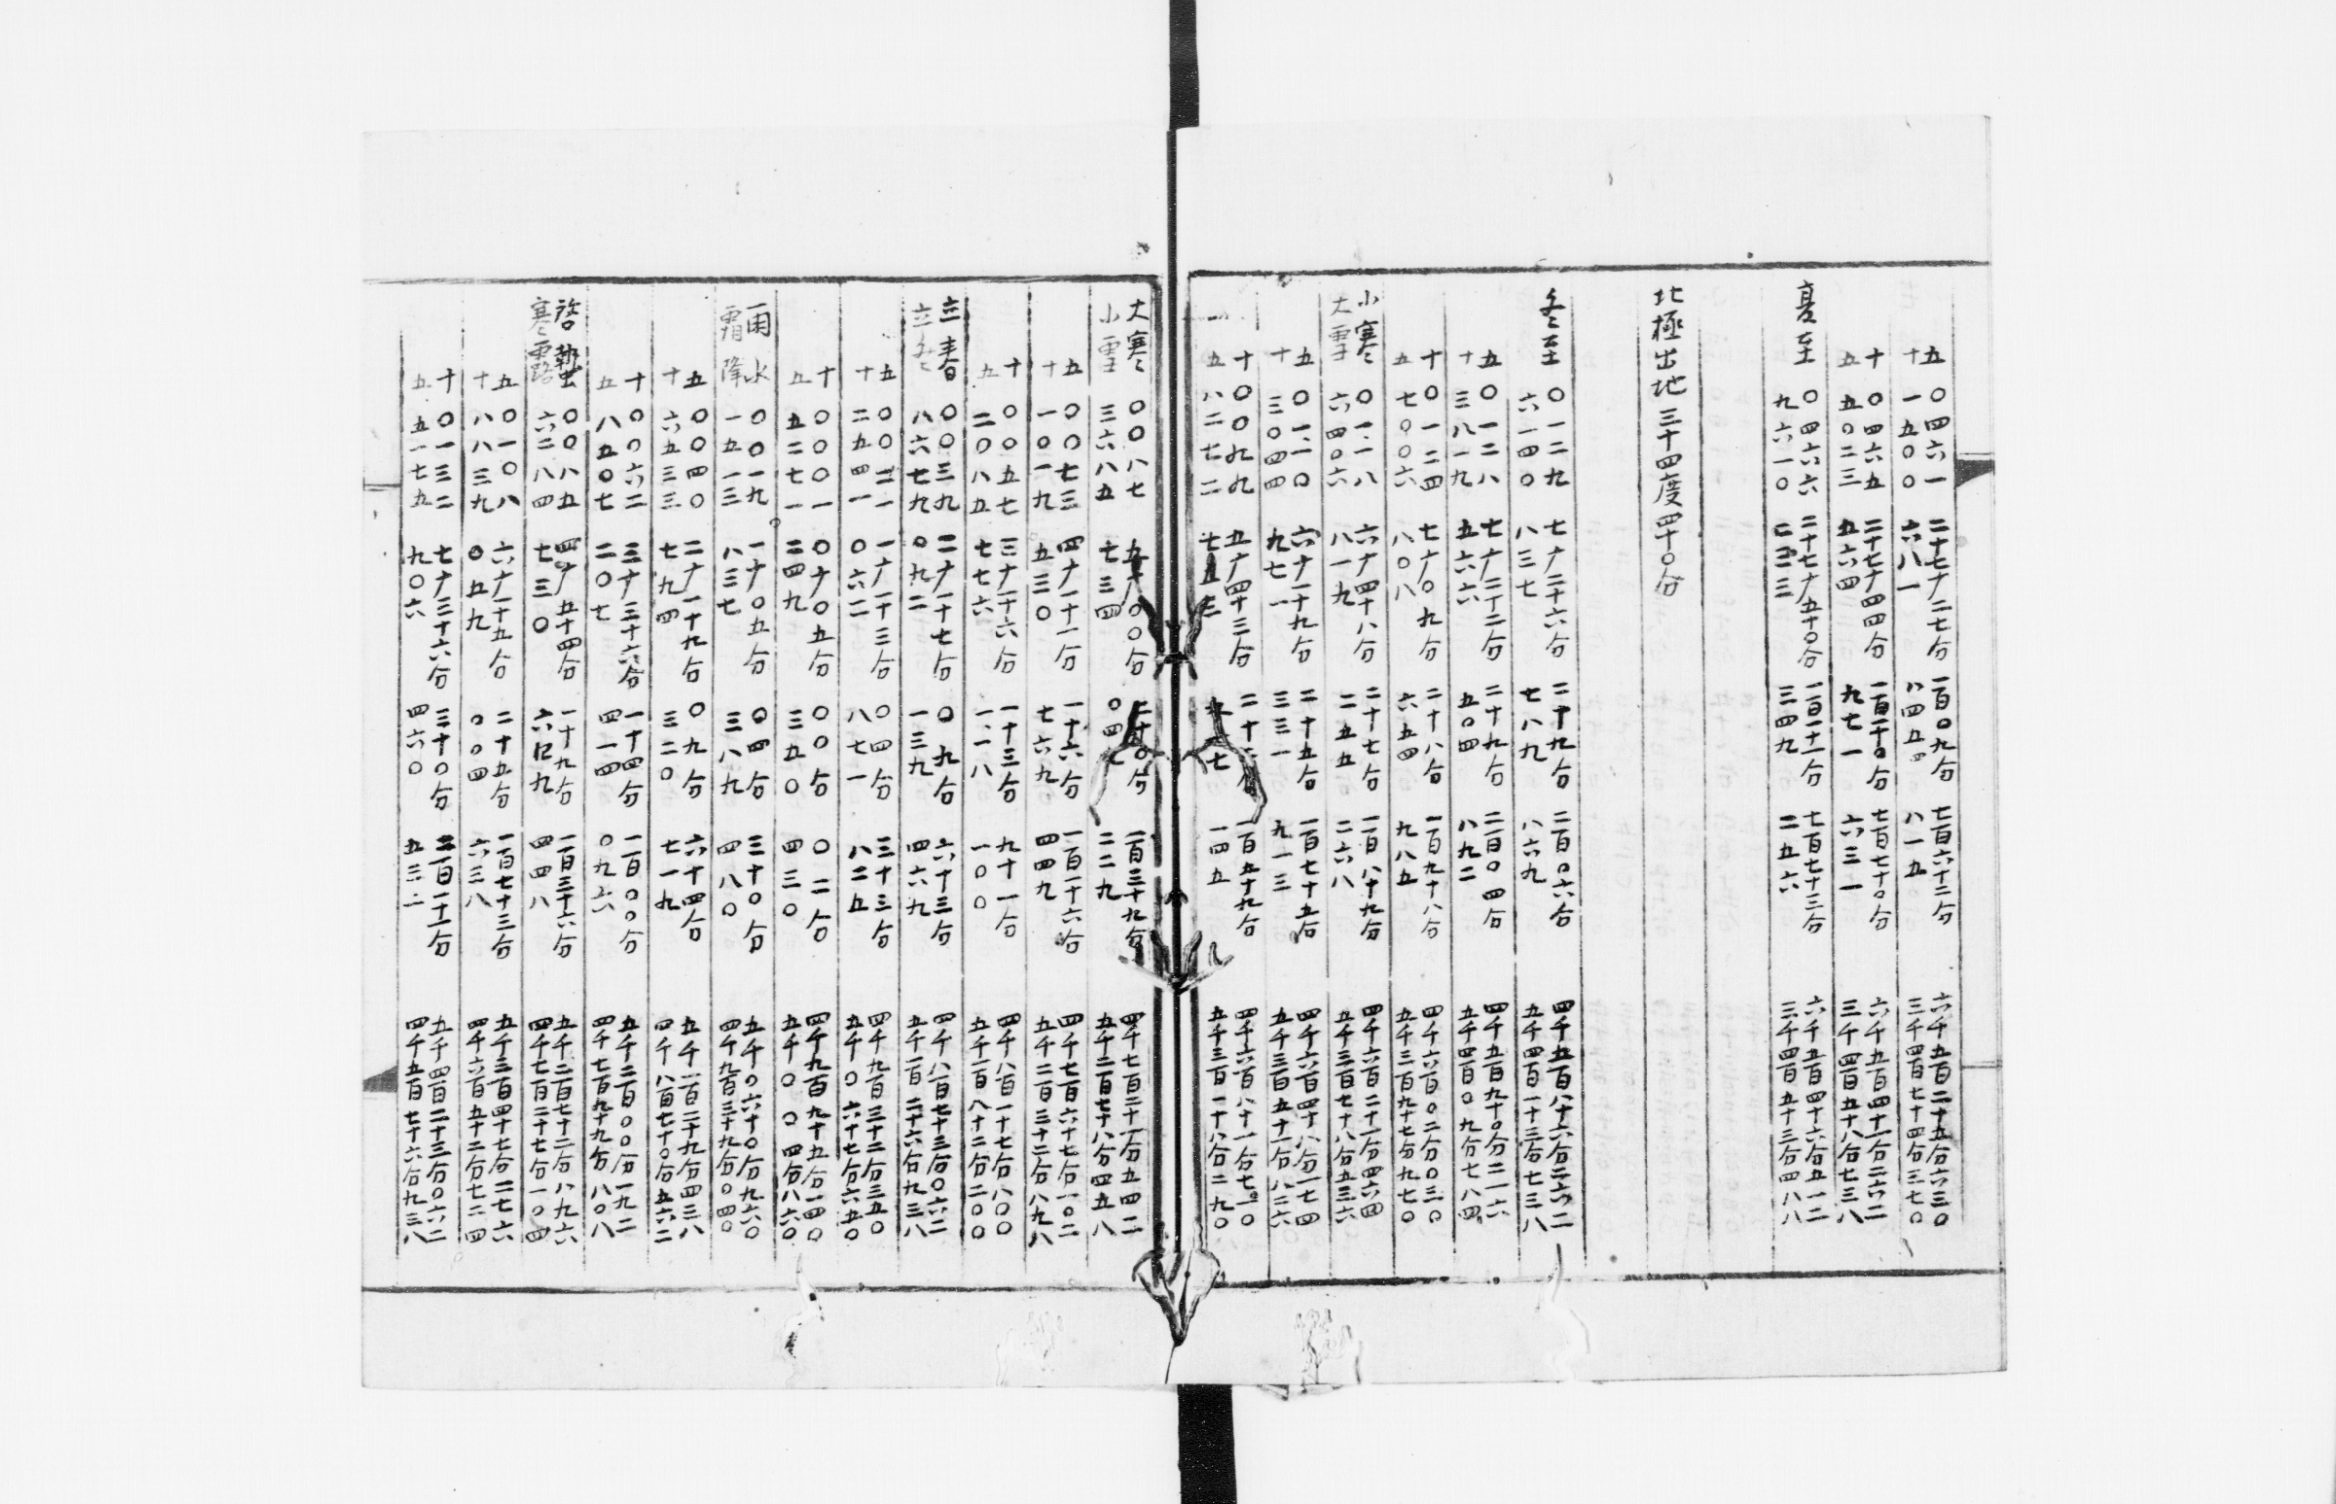 五 〇四六一 二十七广二七分 一百〇九分 七百六十二分 六千五百二十五分六三〇
十 一五〇〇 六八一 八四五 八一五 三千四百七十四分三七〇
十 〇四六五 二十七广四四分 一百一十〇分 七百七十〇分 六千五百四十一分二六二
五 五〇二三 五六四 九七一 六三一 三千四百五十八分七三八
夏至 〇四六六 二十七广五十〇分 一百一十一分 七百七十三分 六千五百四十六分五一二
九六一〇 三四九 二五六 三千四百五十三分四八八
北極出地三十四度四十〇分
冬至 〇一二九 七广二十六分 二十九分 二百〇六分 四千五百八十六分二六二
六一四〇 八三七 七八九 八六九 五千四百一十三分七三八
五 〇一二八 七广二十二分 二十九分 二百〇四分 四千五百九十〇分二一六
十 三八一九 五六六 五〇四 八九二 五千四百〇九分七八四
十 〇一二四 七广〇九分 二十八分 一百九十八分 四千六百〇二分〇三〇
五 七〇〇六 八〇八 六五四 九八五 五千三百九十七分九七〇
小寒 〇一一八 六广四十八分 二十七分 一百八十九分 四千六百二十一分四六四
大雪 六四〇六 八一九 二五五 二六八 五千三百七十八分五三六
五 〇一一〇 六广一十九分 二十五分 一百七十五分 四千六百四十八分一七四
十 三〇四四 九七一 三三一 九一三 五千三百五十一分八二六
十 〇〇九九 五广四十三分 一百五十九分 四千六百八十一分七一〇
五 八二七二 一四五 五千三百一十八分二九〇
大寒 〇〇八七 五广〇〇分 一百三十九分 四千七百二十一分五四二
小雪 三六八五 七三四 二二九 五千二百七十八分四五八
五 〇〇七三 四广一十一分 一十六分 一百一十六分 四千七百六十七分一〇二
十 一〇一九 五三〇 七六九 四四九 五千二百三十二分八九八
十 〇〇五七 三广一十六分 一十三分 九十一分 四千八百一十七分八〇〇
五 二〇八五 七七六 一一八 一〇〇 五千一百八十二分二〇〇
立春 〇〇三九 二广一十七分 〇九分 六十三分 四千八百七十三分〇六二
立冬 八六七九 〇九二 一三九 四六九 五千一百二十六分九三八
五 〇〇二一 一广一十三分 〇四分 三十三分 四千九百三十二分三五〇
十 二五四一 〇六二 八七一 八二五 五千〇六十七分六五〇
十 〇〇〇一 〇广〇五分 〇〇分 〇二分 四千九百九十五分一四〇
五 五二七一 二四九 三五〇 四三〇 五千〇〇四分八六〇
雨水 〇〇一九 一广〇五分 〇四分 三十〇分 五千〇六十〇分九六〇
霜降 一五一三 八三七 三八九 四八〇 四千九百三十九分〇四〇
五 〇〇四〇 二广一十九分 〇九分 六十四分 五千一百二十九分四三八
十 六五三三 七九四 三二〇 七一九 四千八百七十〇分五六二
十 〇〇六二 三广三十六分 一十四分 一百〇〇分 五千二百〇〇分一九二
五 八五〇七 二〇七 四一四 〇九六 四千七百九十九分八〇八
啓蟄 〇〇八五 四广五十四分 一十九分 一百三十六分 五千二百七十二分八九六
寒露 六二八四 七三〇 四四八 四千七百二十七分一〇四
五 〇一〇八 六广一十五分 二十五分 一百七十三分 五千三百四十七分二七六
十 八八三九 〇五九 〇〇四 六三八 四千六百五十二分七二四
十 〇一三二 七广三十六分 三十〇分 二百一十一分 五千四百二十三分〇六二
五 五一七五 九〇六 四六〇 五三二 四千五百七十六分九三八